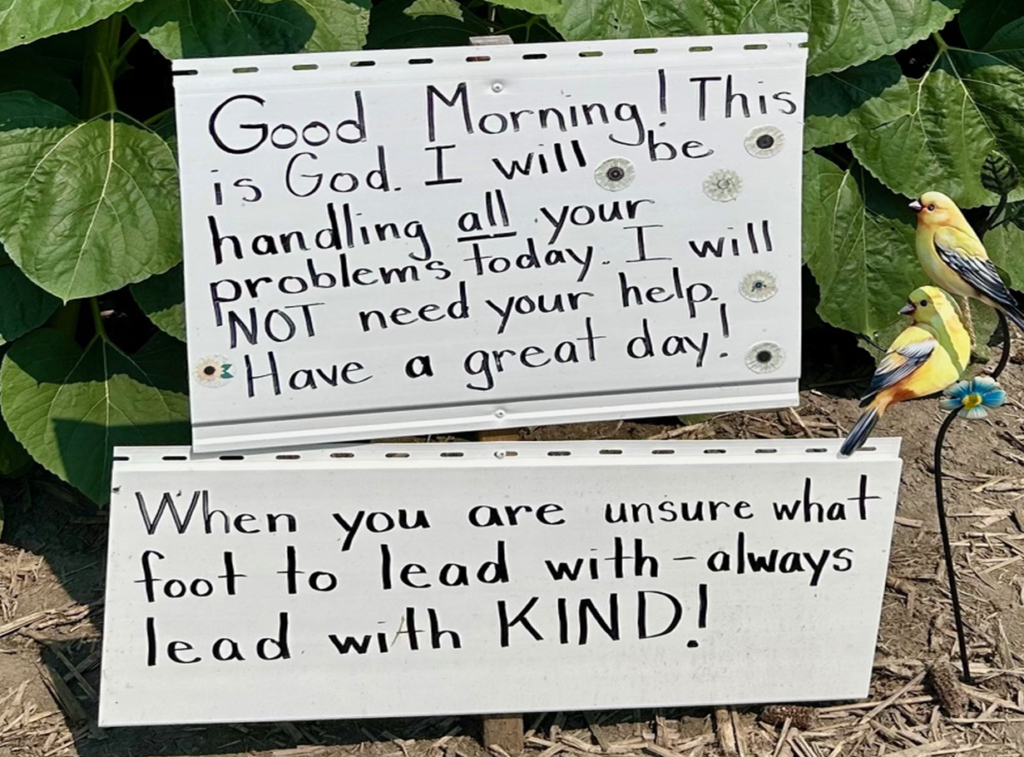 Good Morning! This
is God. I will be
handling all your
problems today. I will
NOT need your help.
Have a great day!
When you are unsure what
foot to lead with - always
lead with KIND!